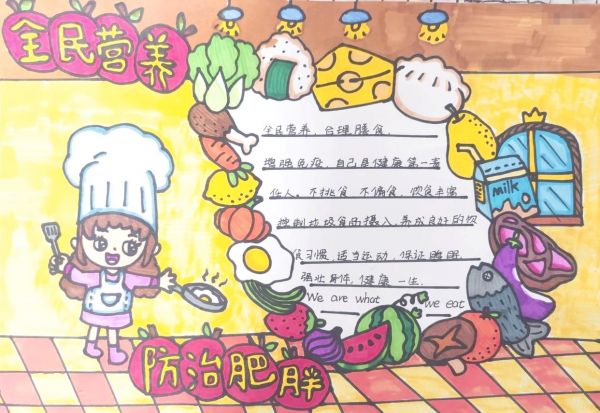 全民营养
全民营养，合理膳食，
增强免疫，自己是健康第一责
任人。不挑食 不偏食，饮食丰富
控制垃圾食品摄入，养成良好的饮
食习惯，适当运动，保证睡眠，
强壮身体，健康一生。
We are what we eat
milk
防治肥胖